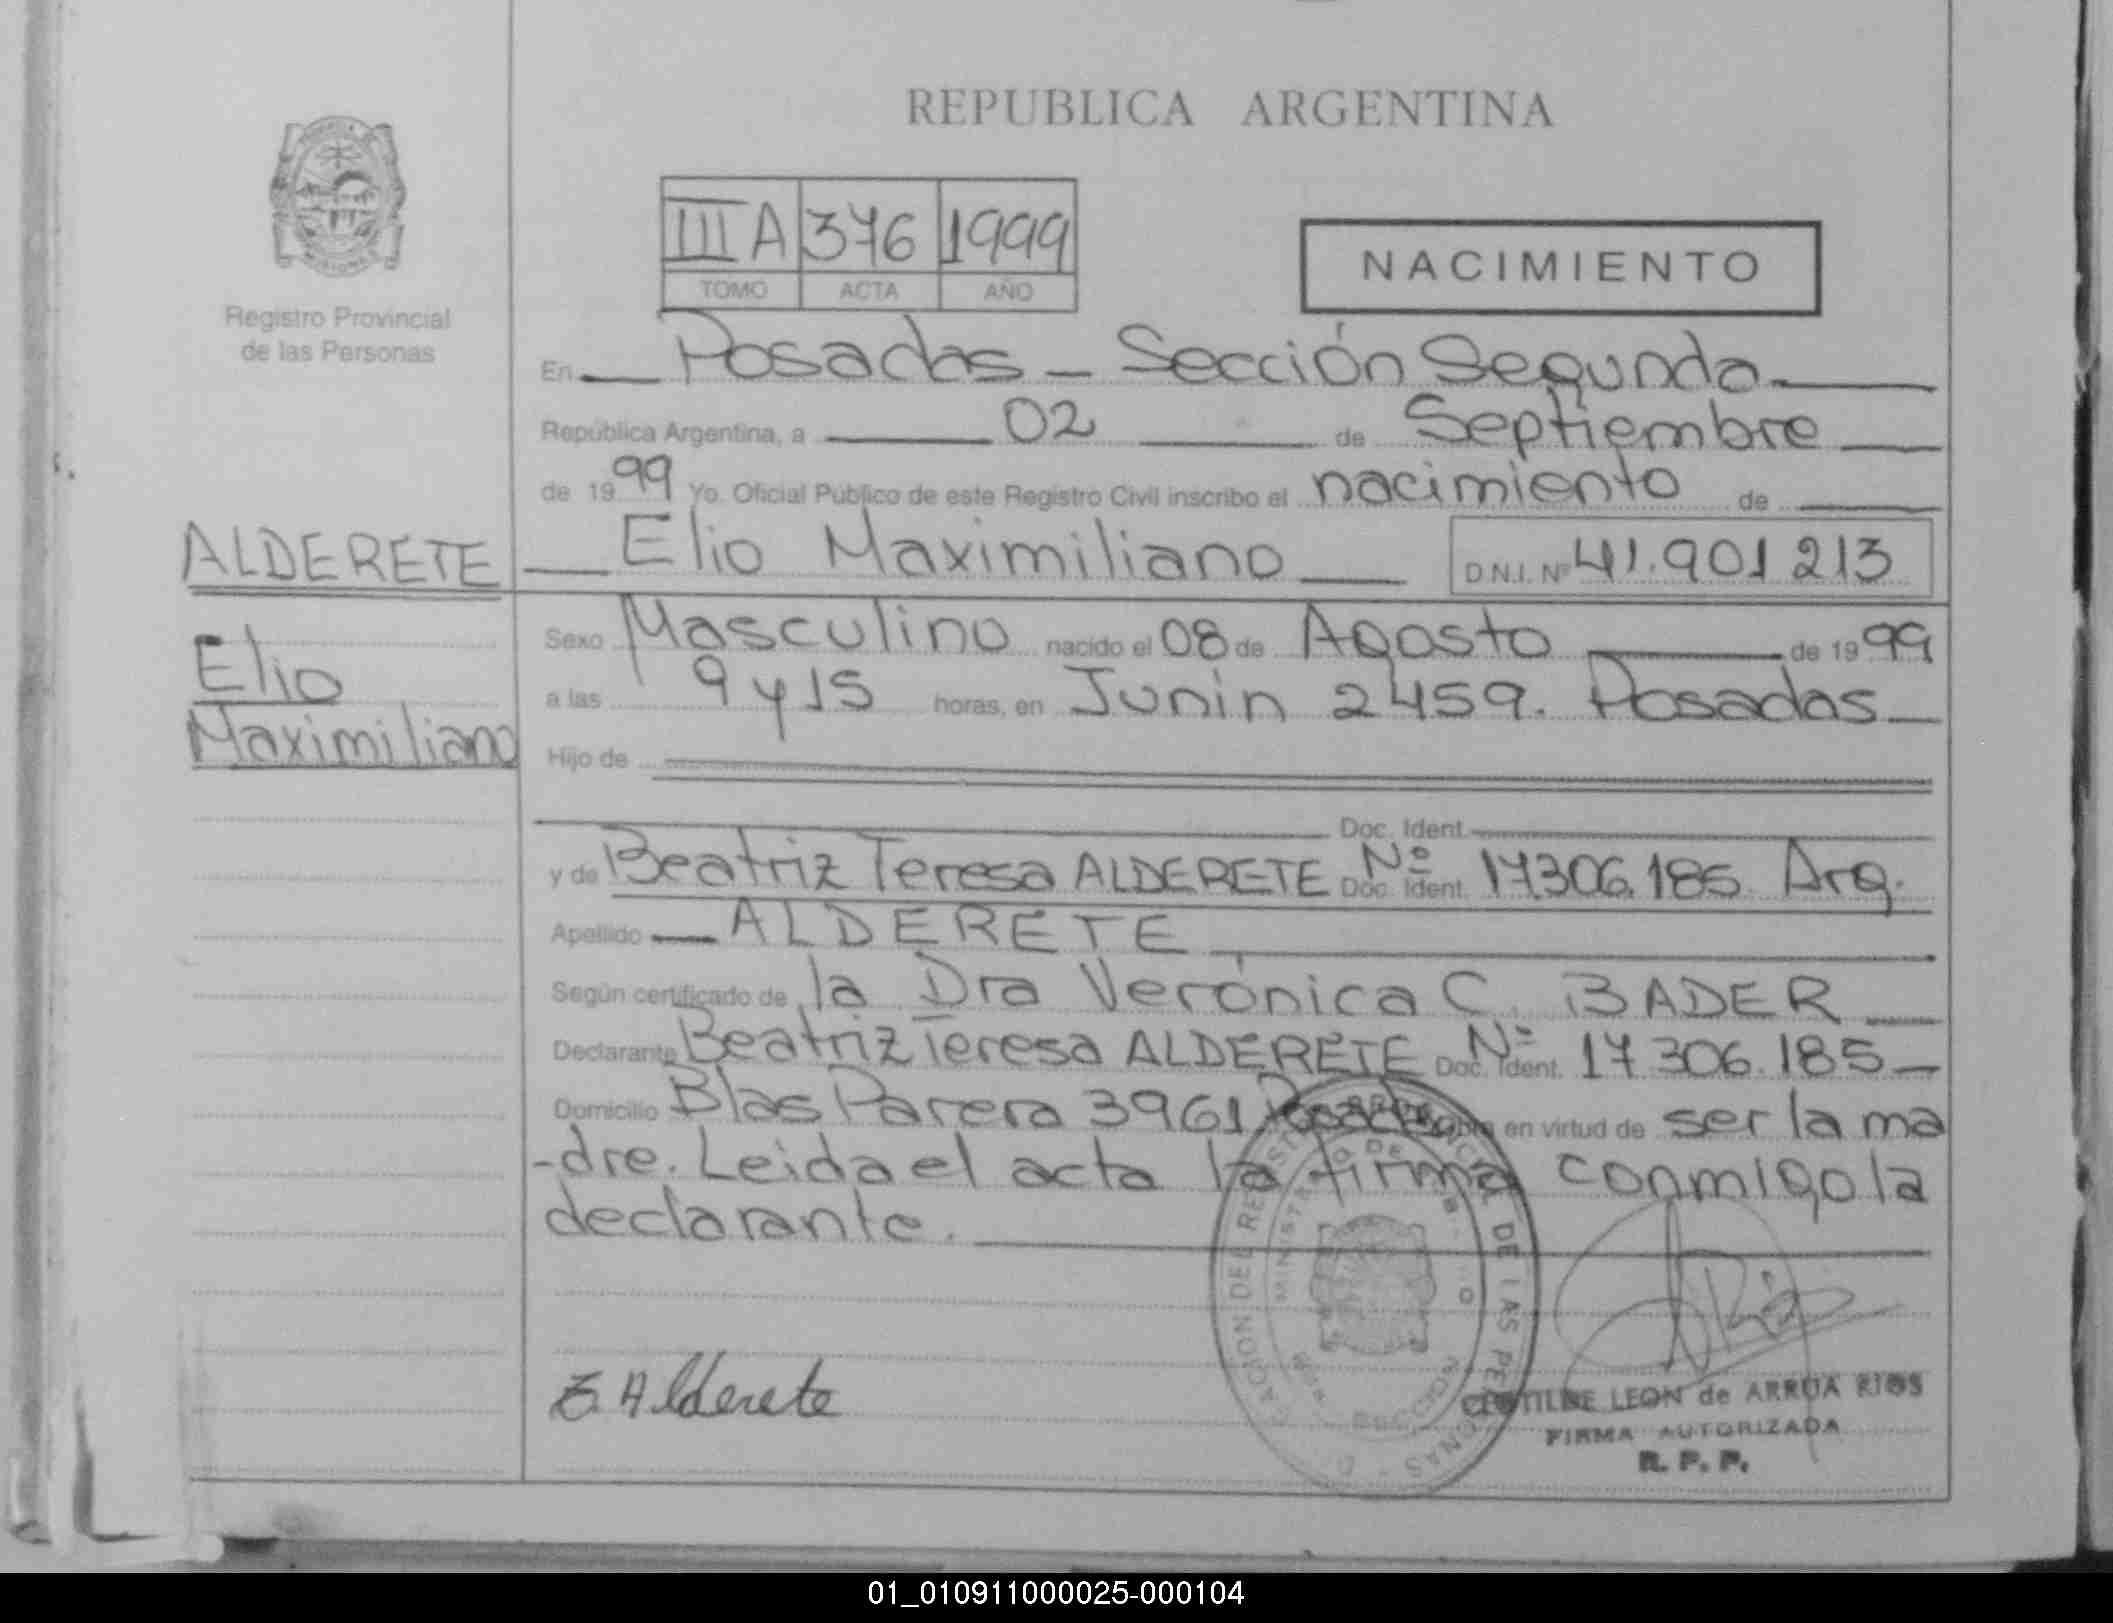 REPUBLICA ARGENTINA
III A 376 1999
TOMO ACTA AÑO
NACIMIENTO
Registro Provincial
de las Personas
En Posadas - Sección Segunda
República Argentina, a 02 de Septiembre
de 1999 Yo. Oficial Público de este Registro Civil inscribo el nacimiento de
ALDERETE
Elio Maximiliano D.N.I. Nº 41.901 213
Elio
Maximiliano
Sexo Masculino nacido el 08 de Agosto de 1999
a las 9 y 15 horas, en Junin 2459. Posadas
Hijo de
Doc. Ident.
y de Beatriz Teresa ALDERETE Doc. Ident. Nº 17.306.185 Arg.
Apellido ALDERETE
Según certificado de la Dra Verónica C. BADER
Declarante Beatriz Teresa ALDERETE Doc. Ident. Nº 17 306.185
Domicilio Blas Parera 3961 en virtud de ser la ma
-dre. Leida el acta la firma conmigo la
declarante.
Alderete
CLOTILDE LEON de ARRUA RIOS
FIRMA AUTORIZADA
R. P. P.
01_010911000025-000104